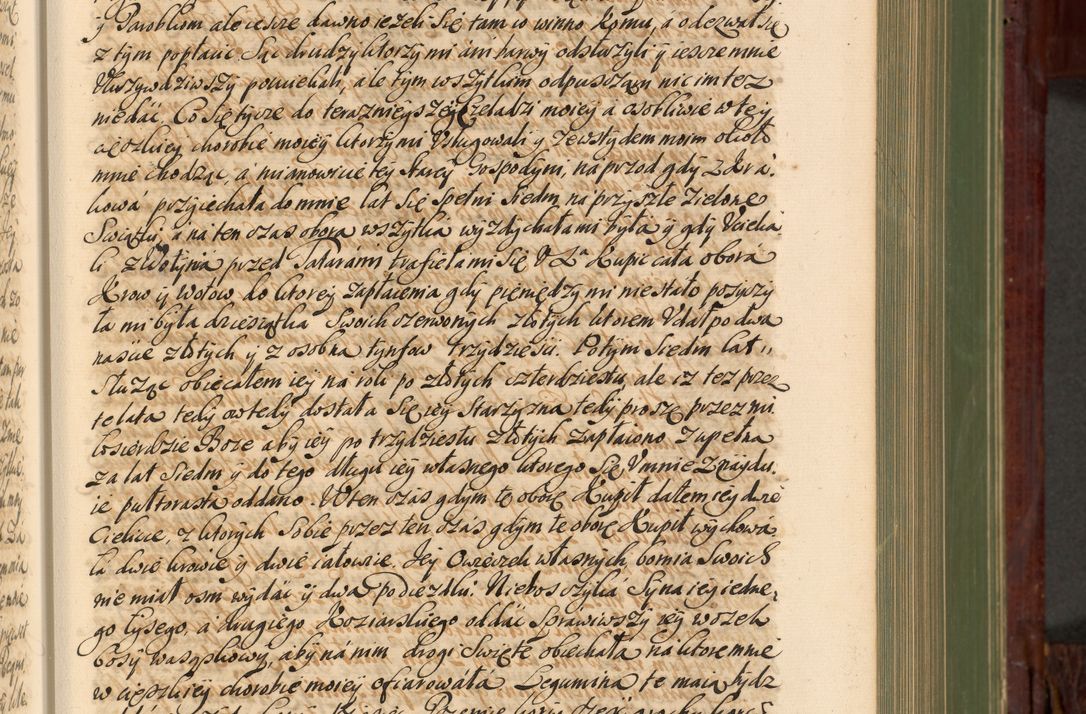 y Parobkom ale iesze dawno ieżeli Się tam co winno komu, a odezwał się
z tym popłacić Się drudzy ktorzy mi ani barwy odsłużyli y iescze mnie
skrzywdziwszy pouciekali, ale tym wszytkim odpuszczam nic im tez
nie dać. Co się tycze do teraznieyszey Czeladzi moiey a osobliwie w tey
cięszkiey chorobie moiey ktorzy mi Vsługowali y ze wstydem moim około
mnie chodząc, a mianowicie tey Starey Gospodyni, na przod gdy z Kra,
kowa przyiechała do mnie lat Się Spełni Siedm na przyszłe Zielone
Swiątki, a na ten czas obora wszytka wyzdychała mi była y gdy Vcieka
li z Wołynia przed Tatarami trafieła mi Się V La Kupić cała obora
Krow y Wołow, do ktorey zapłacenia gdy pieniędzy mi nie stało pożyczy
ła mi była dziesiątka Swoich czerwonych złotych ktorem Vdał po dwa
nascie złotych y z osobna tynfow trzydziesci. Potym Siedm lat
Służąc obiecałem iey na rok po złotych czterdziestu, ale iz tez przez
te lata tedy owtedy dostała Się iey Starzyzna tedy proszę przez mi
łosierdzie Boze aby iey po trzydziestu złotych zapłaiono zupełna
za lat Siedm y do tego długu iey własnego ktorego Się Vmnie znaydu,
ie pułtorasta oddano. Wten czas gdym tę oborę Kupił dałem iey dwie
Cielice, z ktorych Sobie przez ten czas gdym te oborę Kupił wychowa
ła dwie krowie y dwie iałowice. Jey Owieczek własnych, bom ia Swoich
nie miał osm wydać y dwa podiezdki. Nieboszczyka Syna iey iedne,
go łysego, a drugiego Koziarskiego oddać Sprawiwszy iey wozek
bosy wasągkowy, aby na nim drogi Swięte obiechała na ktore mnie
w cięszkiey chorobie moiey ofiarowała Legumina te maią bydz